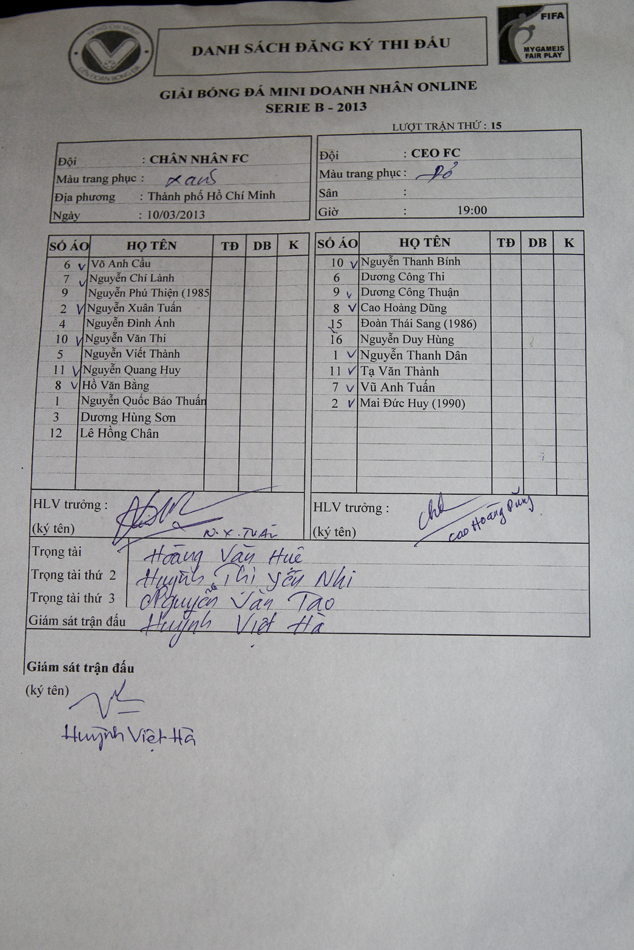 DANH SÁCH ĐĂNG KÝ THI ĐẤU
FIFA
MY GAME IS
FAIR PLAY
GIẢI BÓNG ĐÁ MINI DOANH NHÂN ONLINE
SERIE B - 2013
LƯỢT TRẬN THỨ : 15
Đội : CHÂN NHÂN FC
Màu trang phục : xanh
Địa phương : Thành phố Hồ Chí Minh
Ngày : 10/03/2013
Đội : CEO FC
Màu trang phục : Đỏ
Sân :
Giờ : 19:00
SỐ ÁO HỌ TÊN TĐ DB K
6 Võ Anh Cầu
7 Nguyễn Chí Lành
9 Nguyễn Phú Thiện (1985
2 Nguyễn Xuân Tuấn
4 Nguyễn Đình Ánh
10 Nguyễn Văn Thi
5 Nguyễn Viết Thành
11 Nguyễn Quang Huy
8 Hồ Văn Bằng
1 Nguyễn Quốc Bảo Thuấn
3 Dương Hùng Sơn
12 Lê Hồng Chân
SỐ ÁO HỌ TÊN TĐ DB K
10 Nguyễn Thanh Bình
6 Dương Công Thi
9 Dương Công Thuận
8 Cao Hoàng Dũng
15 Đoàn Thái Sang (1986)
16 Nguyễn Duy Hùng
1 Nguyễn Thanh Dân
11 Tạ Văn Thành
7 Vũ Anh Tuấn
2 Mai Đức Huy (1990)
HLV trưởng :
(ký tên) N.X.TUẤN
HLV trưởng :
(ký tên) Cao Hoàng Dũng
Trọng tài Hoàng Văn Huê
Trọng tài thứ 2 Huỳnh Thị Yến Nhi
Trọng tài thứ 3 Nguyễn Văn Tạo
Giám sát trận đấu Huỳnh Việt Hà
Giám sát trận đấu
(ký tên)
Huỳnh Việt Hà